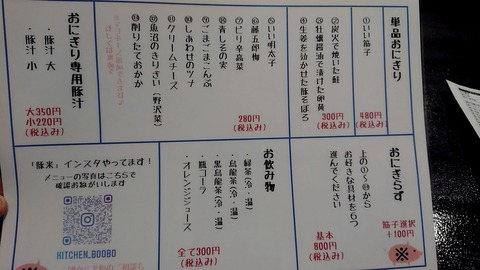 単品おにぎり
①いい筋子
480円
(税込み)
②炭火で焼いた鮭
③牡蠣醤油で漬けた卵黄
④生姜を効かせた豚そぼろ
300円
(税込み)
⑤いい明太子
⑥豚五郎物
⑦ピリ辛高菜
⑧青しその実
⑨ごまこまこんぶ
⑩しあわせのツナ
⑪クリームチーズ
⑫魚沼のきりざい(野沢菜)
⑬削りたておかか
280円
(税込み)
おにぎり専用豚汁
・豚汁 大
・豚汁 小
大350円
小220円
(税込み)
おにぎらず
上の①〜⑬から
お好きな具材を6つ
選んでください
筋子選択
+100円
基本
800円
(税込み)
※
お飲み物
・緑茶(冷・温)
・烏龍茶(冷・温)
・黒烏龍茶(冷・温)
・瓶コーラ
・オレンジジュース
全て300円
(税込み)
「豚米」インスタやってます!
メニューの写真はこちらで
確認お願いします
KITCHEN_BOOBO
※